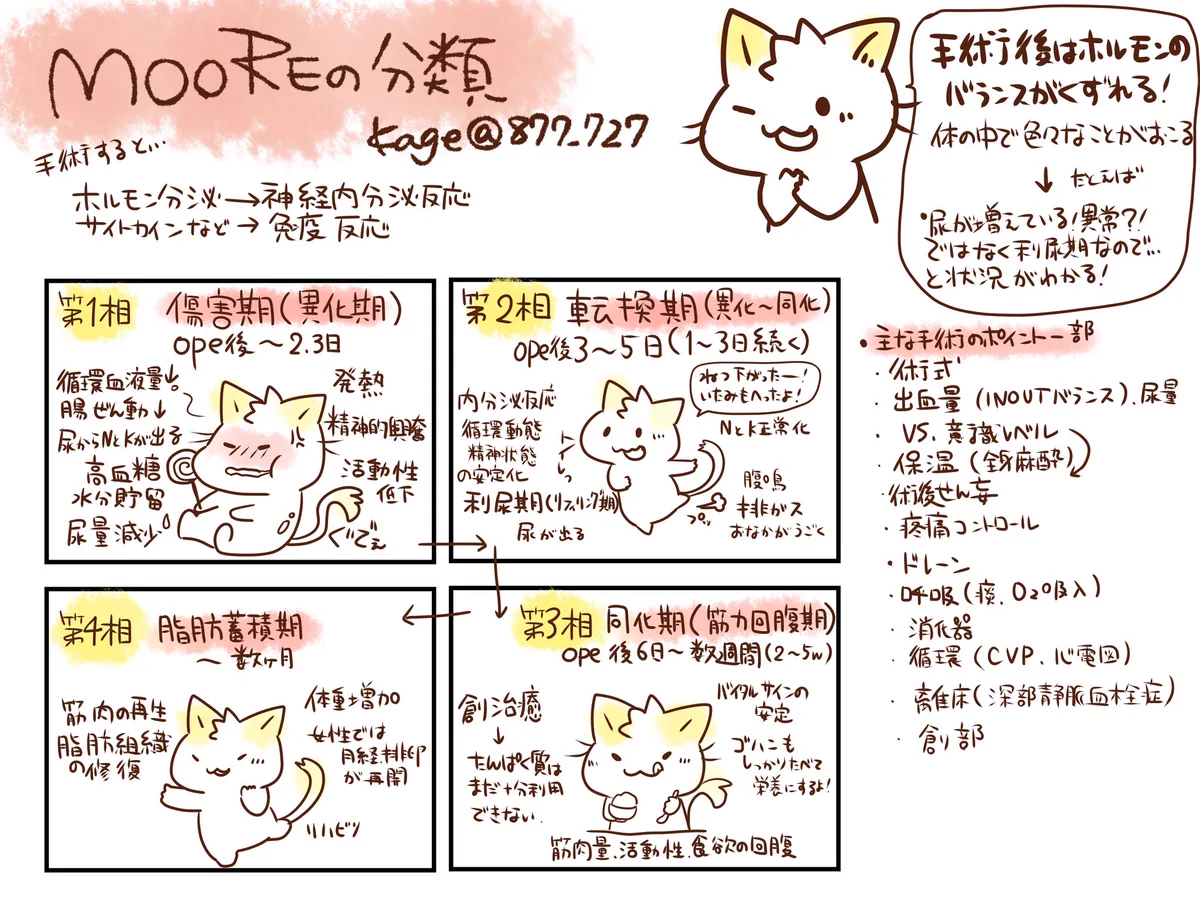 MOOREの分類
Kage@877_727
手術すると…
ホルモン分泌→神経内分泌反応
サイトカインなど→免疫反応
手術後はホルモンの
バランスがくずれる!
体の中で色々なことがおこる
↓たとえば
・尿が増えている!異常?!
ではなく利尿期なので…
と状況がわかる!
第1相 傷害期(異化期)
ope後〜2.3日
循環血液量↓。
腸ぜん動↓
尿からNとKが出る
高血糖
水分貯留
尿量減少
発熱
精神的興奮
活動性
低下
ぐでぇ
第2相 転換期(異化〜同化)
ope後3〜5日(1〜3日続く)
ねつ下がったー!
いたみもへったよ!
内分泌反応
循環動態
精神状態
の安定化
利尿期(リフィリング期)
尿が出る
NとK正常化
腹鳴
排ガス
おなかがうごく
プッ
第3相 同化期(筋力回腹期)
ope後6日〜数週間(2〜5w)
創治癒
↓
たんぱく質は
まだ十分利用
できない.
バイタルサインの
安定
ゴハンも
しっかりたべて
栄養にするよ!
筋肉量、活動性、食欲の回腹
第4相 脂肪蓄積期
〜数ヶ月
筋肉の再生
脂肪組織
の修復
体重増加
女性では
月経排卵
が再開
リハビリ
・主な手術のポイント一部
・術式
・出血量(INOUTバランス)、尿量
・VS.意識レベル
・保温(全身麻酔)
術後せん妄
・疼痛コントロール
・ドレーン
・呼吸(痰、O2吸入)
・消化器
・循環(CVP、心電図)
・離床(深部静脈血栓症)
・創部